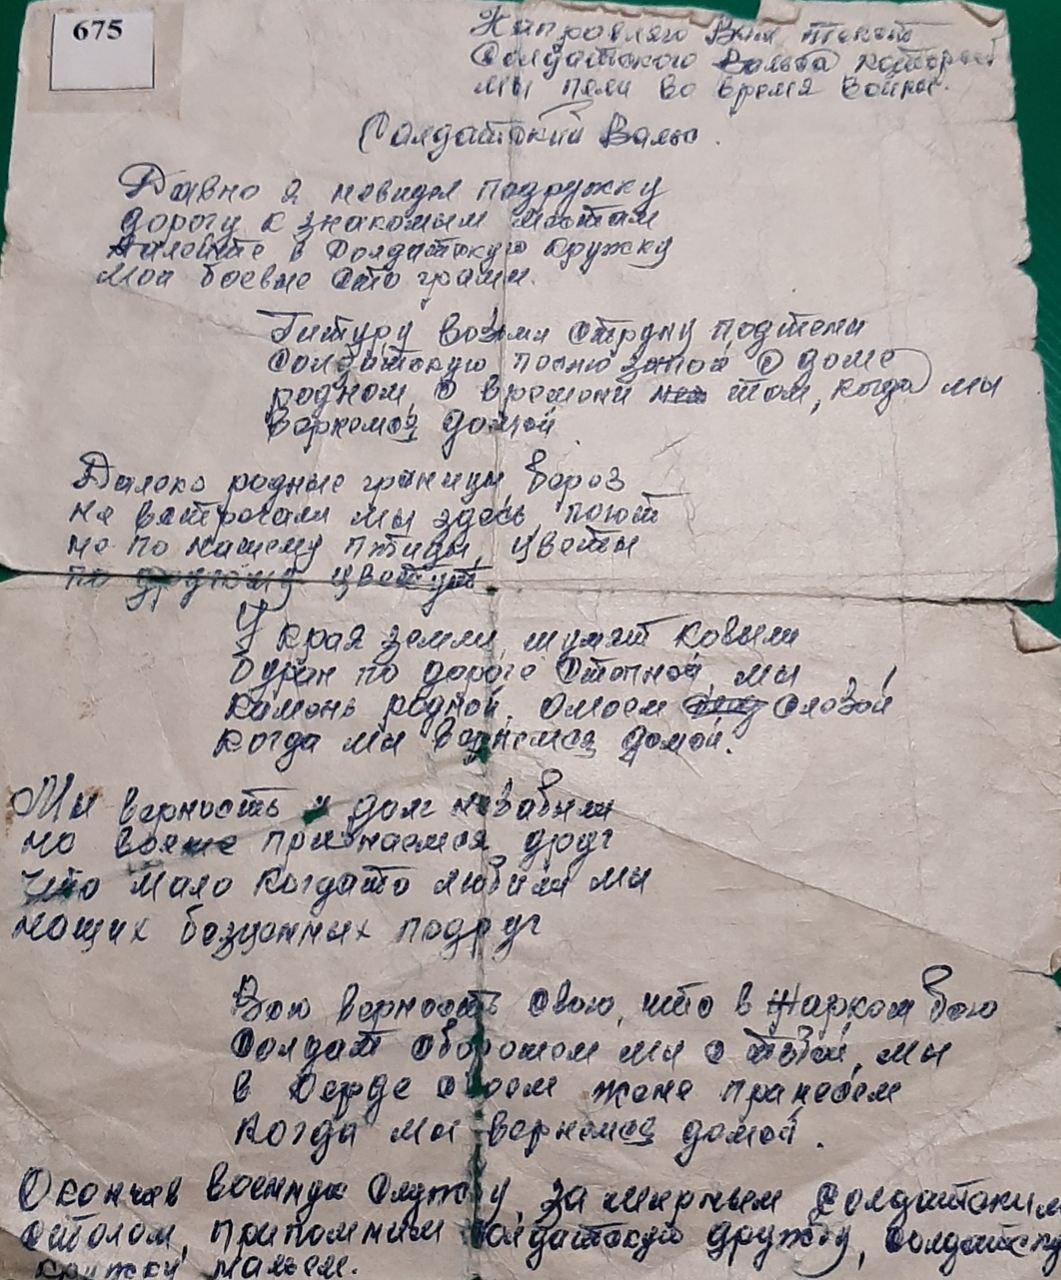 675
Направляю Вам текст
Солдатского Вальса который
мы пели во время войны.
Солдатский Вальс.
Давно я невидел подружку
дорогу к знакомым местам
Налейте в Солдатскую кружку
мои боевые сто грамм.
Гитару возьми струну подтени
Солдатскую песню запой о доме
родном, о времени том, когда мы
вернемся домой
Далеко родные границы, берез
не встречали мы здесь, поют
не по нашему птицы, цветы
по другому цветут
У края земли, шумят ковыли
буран по дороге степной, мы
камень родной, омоем слезой
когда мы вернемся домой.
Мы верность и долг незабыли
но все же признаемся друг
что мало когдато любили мы
наших безценных подруг
Всю верность свою, что в жарком бою
Солдат сберегаем мы с тобой, мы
в серде своем жене пранесем
когда мы вернемся домой.
Окончев военную службу, за мирным Солдатским
столом, припомним солдатскую дружбу,
кружку нальем.